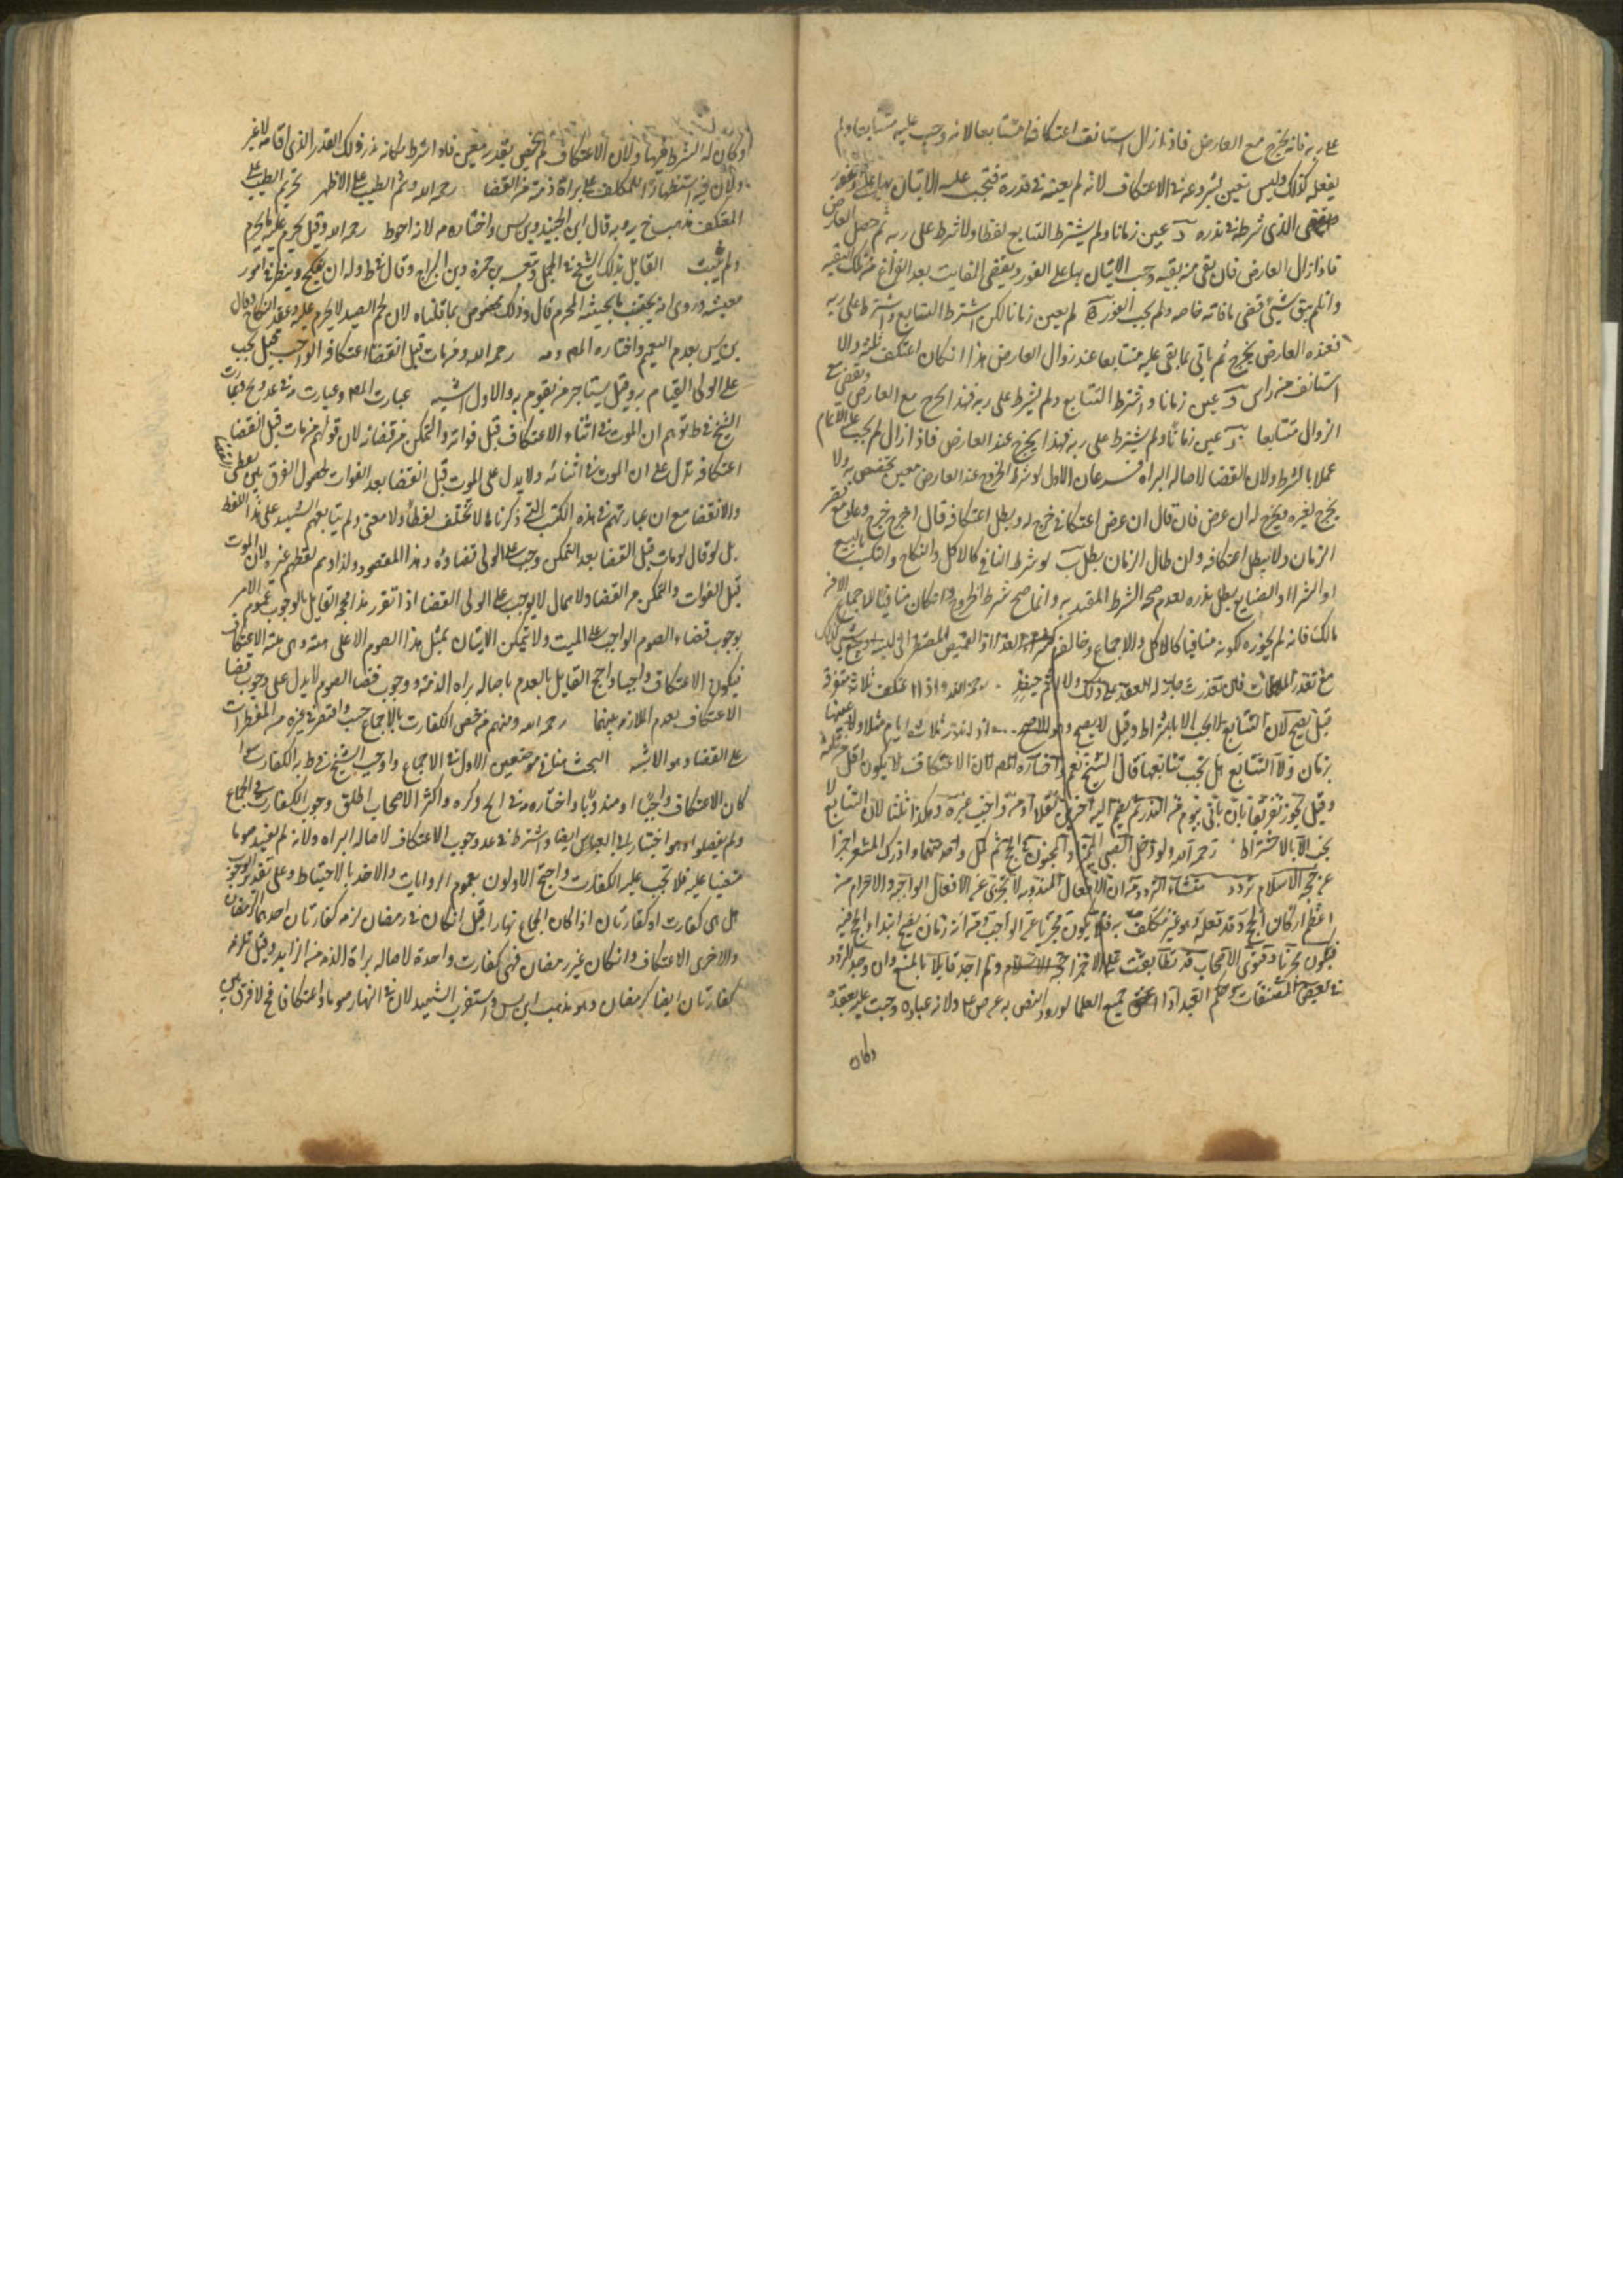 على ربه فانه يخرج مع العارض فاذا زال استانف اعتكافا متتابعا لانه وجب عليه متتابعا ولم
يفعله كذلك وليس تعين بشروعه في الاعتكاف لانه لم يعينه في نذره فتجب عليه الاتيان بها على
الذي شرطه في نذره د عين زمانا ولم يشترط التتابع لفظا ولا شرط على ربه ثم حصل العارض
فاذا زال العارض فان بقي منه بقيه وجب الاتيان بها على الفور ويقضي الفايت بعد الفراغ من تلك البقيه
وان لم يبق شيئ قضى ما فاته خاصه ولم يجب الفور ه لم يعين زمانا لكن اشترط التتابع واشترط على ربه
فعنده العارض يخرج ثم ياتي بما بقي عليه متتابعا عند زوال العارض هذا ان كان اعتكف ثلثه والا
استانف من راس و عين زمانا واشترط التتابع ولم يشرط على ربه فهذا يخرج مع العارض ويقضي مع
الزوال متتابعا عين زمانا ولم يشترط على ربه فهذا يخرج عند العارض فاذا زال لم يجب عليه الاتمام
عملا بالشرط ولا القضا لاصاله البراه فرعان الاول لو شرط الخروج عند العارض معين تخصص به ولا
يخرج لغيره ويخرج له ان عرض فان قال ان عرض اعتكافي خروج له ويبطل اعتكافه قال اخرج خرج وعاد مع قصر
الزمان ولا يبطل اعتكافه وان طال الزمان بطل ب لو شرط المنافي كالاكل والنكاح والتكسب بالبيع
او الشرا او الصنايع بطل نذره لعدم صحه الشرط المقيد به وانما صح شرط الخروج وان كان منافيا للاجماع الا من
مالك فانه لم يجوزه لكونه منافيا كالاكل والاجماع وخالف
مع تعذر فان تعذرت جاز له العقد على ذلك ولا اثم حينئذ رحمه الله واذا اعتكف ثلاثة متفرقة
قيل يصح لان التتابع لا يجب الا بالاشتراط وقيل لا يصح وهو الاصح اذا نذر ثلاثة ايام مثلا ولم يعينها
بزمان ولا التتابع هل يجب تتابعها قال الشيخ نعم واختاره المص لان الاعتكاف لا يكون اقل من ثلثه
وقيل يجوز تفريقها بان ياتي بيوم من النذر ثم يضم اليه اخرين نفلا او من واجب غيره وهكذا ثلثا لان التتابع لا
يجب الا بالاشتراط رحمه الله ولو دخل الصبي المميز والمجنون في الحج ثم كمل واحد منهما وادرك المشعر اجزا
عن حجه الاسلام على تردد منشاء التردد من ان الافعال المندوبه لا تجزي عن الافعال الواجبه والاحرام من
اعظم اركان الحج وقد فعله وهو غير مكلف به فلا يكون مجزيا عن الواجب ومن انه زمان يصح ابتدا الحج فيه
فيكون مجزيا وفتوى الاصحاب قد تطابقت على الاجزا عن حجه الاسلام ولم اجد قايلا بالمنع وان وجد التردد
في بعض المصنفات وحكم العبد اذا اعتق جميع العلما لورود النص به عنهم ولانه عباده وجبت عليه بعقده
وكان
وكان له الشرط فيها ولان الاعتكاف لم يختص بقدر معين فاذا اشترط فكانه نذر ذلك القدر الذي اقامه لا غير
ولان فيه استظهارا للمكلف على براة ذمته من القضا رحمه الله وشم الطيب على الاظهر تحريم الطيب على
المعتكف مذهب خ يه وبه قال ابن الجنيد وابن س واختاره مه لانه احوط رحمه الله وقيل يحرم عليه ما يحرم
ولم يثبت القايل بذلك الشيخ في الجمل وتبعه بن حمزه وبن البراج وقال في ط وله ان ينكح وينظر في امور
معيشته وروى انه يجتنب ما يجتنبه المحرم قال وذلك مخصوص بما قلناه لان لحم الصيد لا يحرم عليه وعقد النكاح وقال
بن س بعدم التعميم واختاره المص ومه رحمه الله ومن مات قبل انقضا اعتكافه الواجب قيل يجب
على الولي القيام به وقيل يستاجر من يقوم به والاول اشبه عبارت المص وعبارت مه في عد وير وعبارت
الشيخ في ط توهم ان الموت في اثناء الاعتكاف قبل فواته والتمكن من قضائه لان قولهم من مات قبل انقضا
اعتكافه تدل على ان الموت في اثنائه ولا يدل على الموت قبل القضا بعد الفوات لحصول الفرق بين لفظي القضا
والانقضا مع ان عبارتهم في هذه الكتب التي ذكرناها لا تختلف لفظا ولا معنى ولم يتابعهم الشهيد على هذا اللفظ
بل لو قال لو مات قبل القضا بعد التمكن وجب على الولي قضاؤه وهذا المقصود ولذا وهم لفظهم غيره لان الموت
قبل الفوات والتمكن من القضا ولا همال لا يوجب على الولي القضا اذا تقرر هذا فحجه القايل بالوجوب عموم الامر
بوجوب قضاء الصوم الواجب على الميت ولا يمكن الاتيان بمثل هذا الصوم الا على هيئته وهي هيئة الاعتكاف
فيكون الاعتكاف واجبا واحتج القايل بالعدم باصاله براه الذمه ووجوب قضا الصوم لا يدل على وجوب قضا
الاعتكاف بعدم الملازمه بينهما رحمه الله ومنهم من خص الكفارت بالجماع حسب واقتصر في غيره من المفطرات
على القضا وهو الاشبه البحث هنا في موضعين الاول في الاجماع واوجب الشيخ في ط به الكفارت سوا
كان الاعتكاف واجبا او مندوبا واختاره مه في لح وكره واكثر الاصحاب اطلق وجوب الكفارت في الجماع
ولم يفصلوا وهو اختيار ابي العباس ايضا واشترط في عد وجوب الاعتكاف لاصاله البراه ولانه لم يفسد صوما
متعينا عليه فلا تجب عليه الكفارت واحتج الاولون بعموم الروايات والاخذ بالاحتياط وعلى تقدير الوجوب
هل هي كفارت او كفارتان اذا كان الجماع نهارا قيل ان كان في رمضان لزمه كفارتان احدهما لرمضان
والاخرى الاعتكاف وان كان غير رمضان فهي كفارت واحدة لاصاله براة الذمه من الزايد وقيل تلزمه
كفارتان ايضا كرمضان وهو مذهب ابن س واستقرب الشهيد لان في النهار صوما واعتكافا فح لا فرق بين